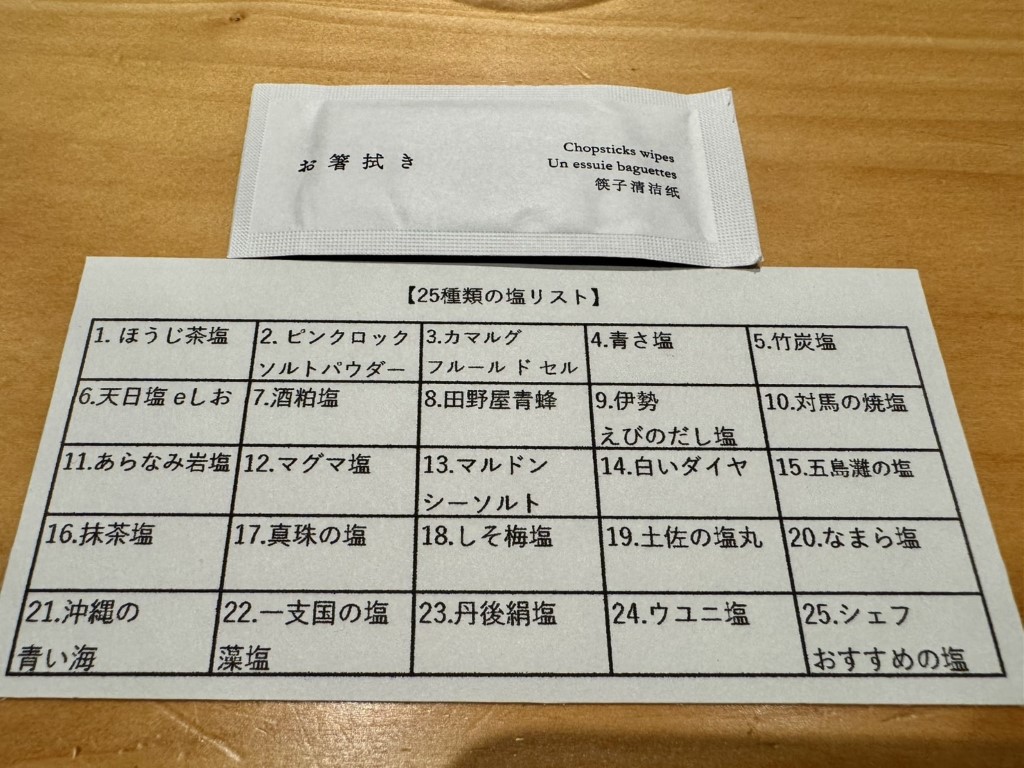 お箸拭き
Chopsticks wipes
Un essuie baguettes
筷子清洁纸
【25種類の塩リスト】
1. ほうじ茶塩
2. ピンクロック
ソルトパウダー
3.カマルグ
フルール ド セル
4.青さ塩
5.竹炭塩
6.天日塩 eしお
7.酒粕塩
8.田野屋青蜂
9.伊勢
えびのだし塩
10.対馬の焼塩
11.あらなみ岩塩
12.マグマ塩
13.マルドン
シーソルト
14.白いダイヤ
15.五島灘の塩
16.抹茶塩
17.真珠の塩
18.しそ梅塩
19.土佐の塩丸
20.なまら塩
21.沖縄の
青い海
22.一支国の塩
藻塩
23.丹後絹塩
24.ウユニ塩
25.シェフ
おすすめの塩